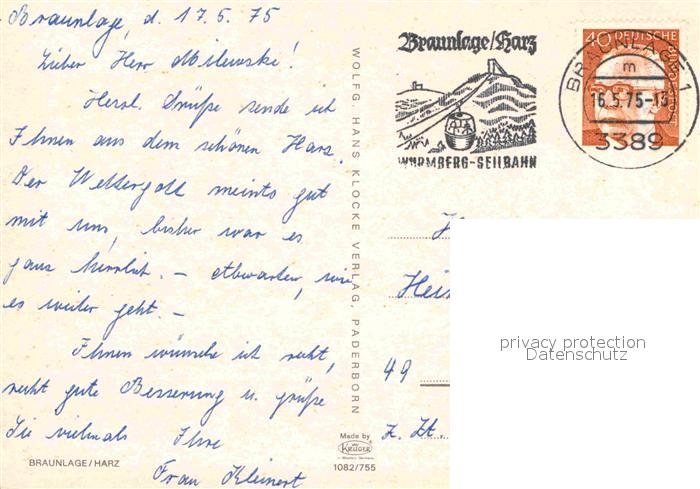 Braunlage, d. 17.5.75
Lieber Herr Milewski!
Herzl. Grüße sende ich
Ihnen aus dem schönen Harz.
Der Wettergott meints gut
mit uns, bisher war es
ganz herrlich. - Abwarten, wie
es weiter geht. -
Ihnen wünsche ich recht,
recht gute Besserung u. grüße
Sie vielmals Ihre
Frau Kleinert
BRAUNLAGE/HARZ
WOLFG. HANS KLOCKE VERLAG, PADERBORN
Made by
KRÜGER
1082/755
Braunlage/Harz
WURMBERG-SEILBAHN
40 DEUTSCHE
BRAUNLAGE 1
m
16.5.75-18
3389
H
Hei
49
z. Zt.
privacy protection
Datenschutz